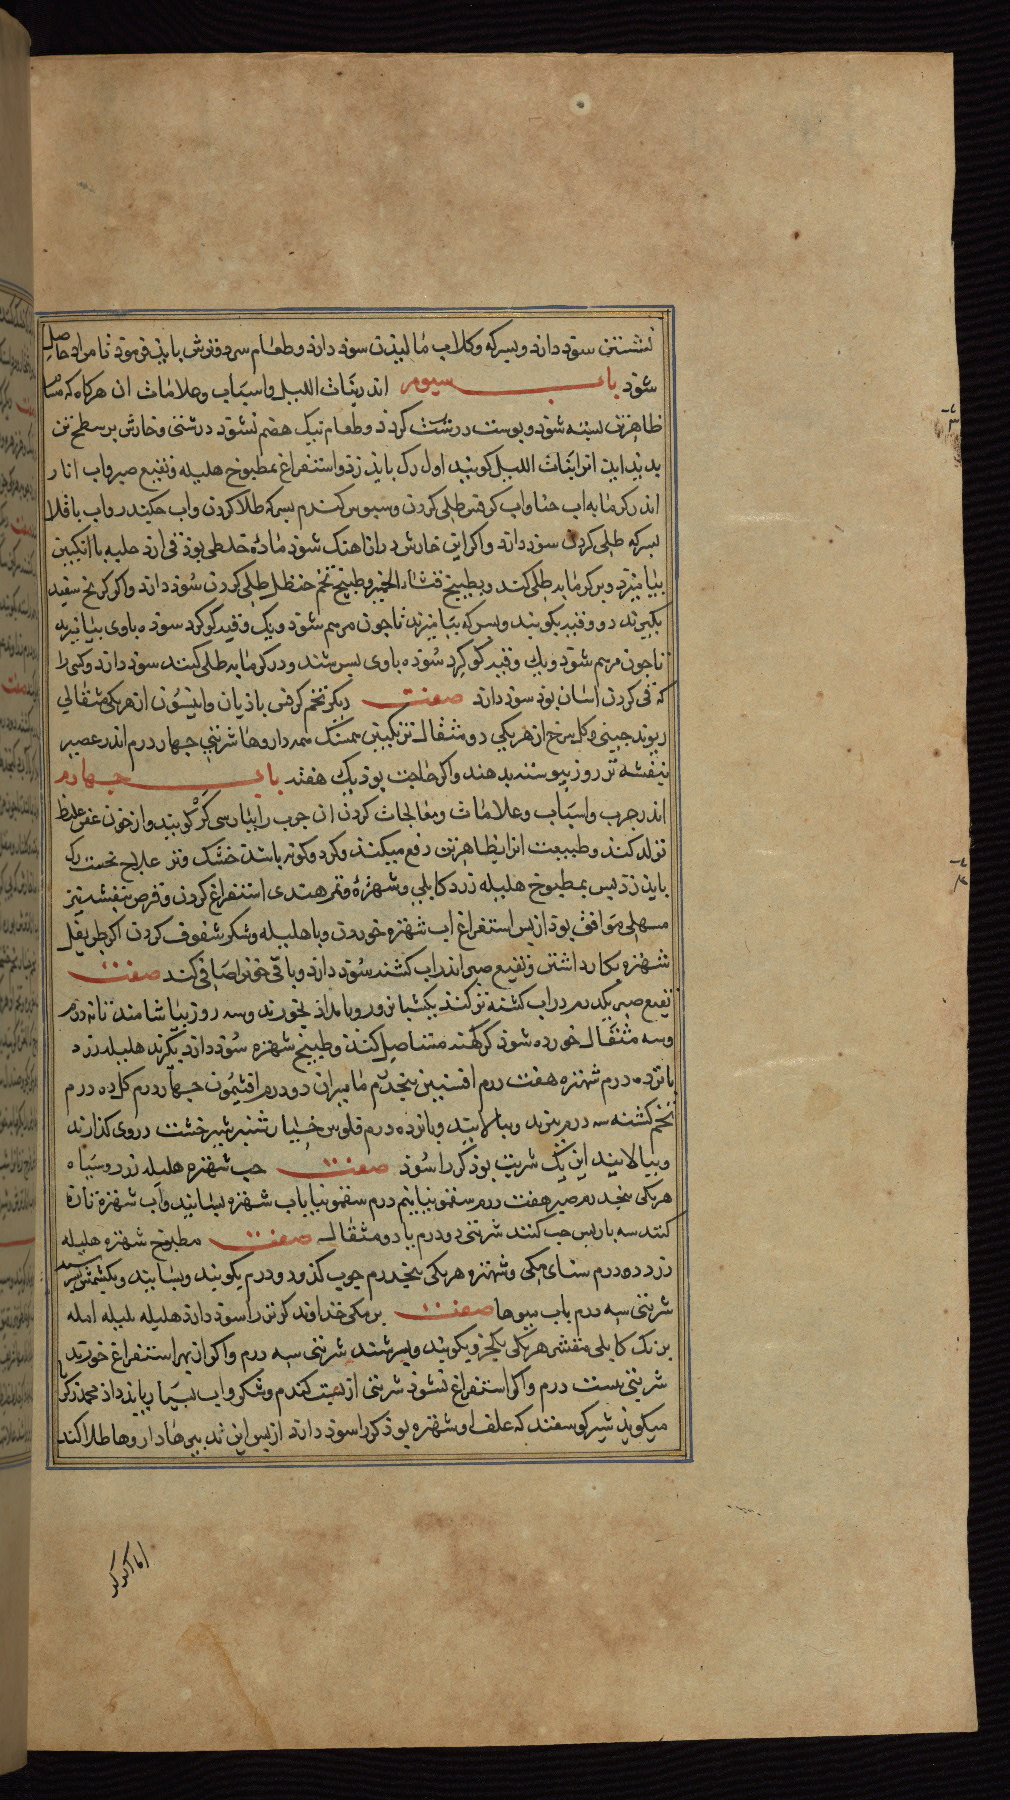 نشستن سود دارد و بسرکه و کلاب مالیذن سوذ دارد و طعام سرد و ترش باید فرمود تا مراد حاصل
شود باب سیوم اندر بنات اللیل و اسباب و علامات ان هرکاه که مسا
ظاهر تن بسته شود و پوست درشت کردد و طعام نیک هضم نشود درشتی و خارش بر سطح تن
پدید اید انرا بنات اللیل کویند اول رک باید زد و استفراغ بمطبوخ هلیله و نقیع صبر و اب انار
اندر کرمابه اب حنا و اب کرفس طلی کردن و سبوس کندم بسرکه طلا کردن و اب چکندر و اب باقلا
بسرکه طلی کردن سوذ دارد و اکر این خارش دراز اهنک شود ماده خلطی بوذ قی ارد حلبه با انکبین
بیامیزد و بر کرمابه طلی کند و بطبیخ قثاء الحمیر و طبیخ تخم حنظل طلی کردن سوذ دارد و اکر کرنج سفید
بکیرند دو وقیه بکویند و بسرکه بیامیزند تا چون مرهم شود و یک وقیه کوکرد سوده باوی بیامیزند
تا چون مرهم شود و یک وقیه کوکرد سوده باوی بسرشند و در کرمابه طلی کنند سوذ دارد و کسی را
که قی کردن اسان بود سوذ دارد صفت دیکر تخم کرفس بادیان و انیسون از هر یکی مثقالی
ریوند چینی و کل سرخ از هر یکی دو مثقال ترنکبین همسنک همه داروها شربتی چهار درم اندر عصیر
بنفشه تر روز پیوسته بدهند و اکر حاجت بوذ یک هفته باب چهارم
اندر جرب و اسباب و علامات و معالجات کردن ان جرب را بپارسی کر کویند و از خون عفن غلیظ
تولد کند و طبیعت انرا بظاهر تن دفع میکند و کر دو کونه باشد خشک و تر علاج نخست رک
باید زد پس بمطبوخ هلیله زرد کابلی و شهتره و تمر هندی استفراغ کردن و قرص بنفشه نیز
مسهلی موافق بود از پس استفراغ اب شهتره خوردن و با هلیله و شکر سفوف کردن اکر طریفل
شهتره بکار داشتن و نقیع صبر اندر اب کشنه سود دارد و باقی خونرا صافی کند صفت
نقیع صبر یکدرم در اب کشنه تر کنند یکشبانروز و بامداد بخورند و سه روز بیاشامند تا نه درم
و سه مثقال خورده شوذ کر کهنه مستاصل کند و طبیخ شهتره سوذ دارد بکیرند هلیله زرد
پانزده درم شهتره هفت درم افسنتین پنجدرم مامیران دو درم افتیمون چهار درم کل ده درم
تخم کشنه سه درم بپزند و بپالایند و پانزده درم فلوس خیار شنبر شیرخشت در وی کذارند
و بپالایند این یک شربت بوذ کر را سوذ صفت حب شهتره هلیله زرد و سیاه
هریکی پنجدرم صبر هفت درم سقمونیا پنجم درم سقمونیا باب شهتره بسایند و اب شهتره تازه
کنند سه بار پس حب کنند شربتی دو درم یا دو مثقال صفت مطبوخ شهتره هلیله
زرد ده درم سنای مکی و شهتره هریکی پنجدرم چوب کز دو درم بکویند و بسایند و بکشمش بسرشند
شربتی سه درم باب میوها صفت برمکی خداوند کر تر را سوذ دارد هلیله بلیله امله
برنک کابلی مقشر هریکی یکجزو بکویند و بسرشند شربتی سه درم و اکر از بهر استفراغ خورند
شربتی بست درم و اکر استفراغ نشود شربتی از کندم و شکر و اب بسیار باید داد محمد زکریا
میکوید شیر کوسفند که علف او شهتره بوذ کر را سوذ دارد از پس این تدبیرها داروها طلا کند
اما کر کو